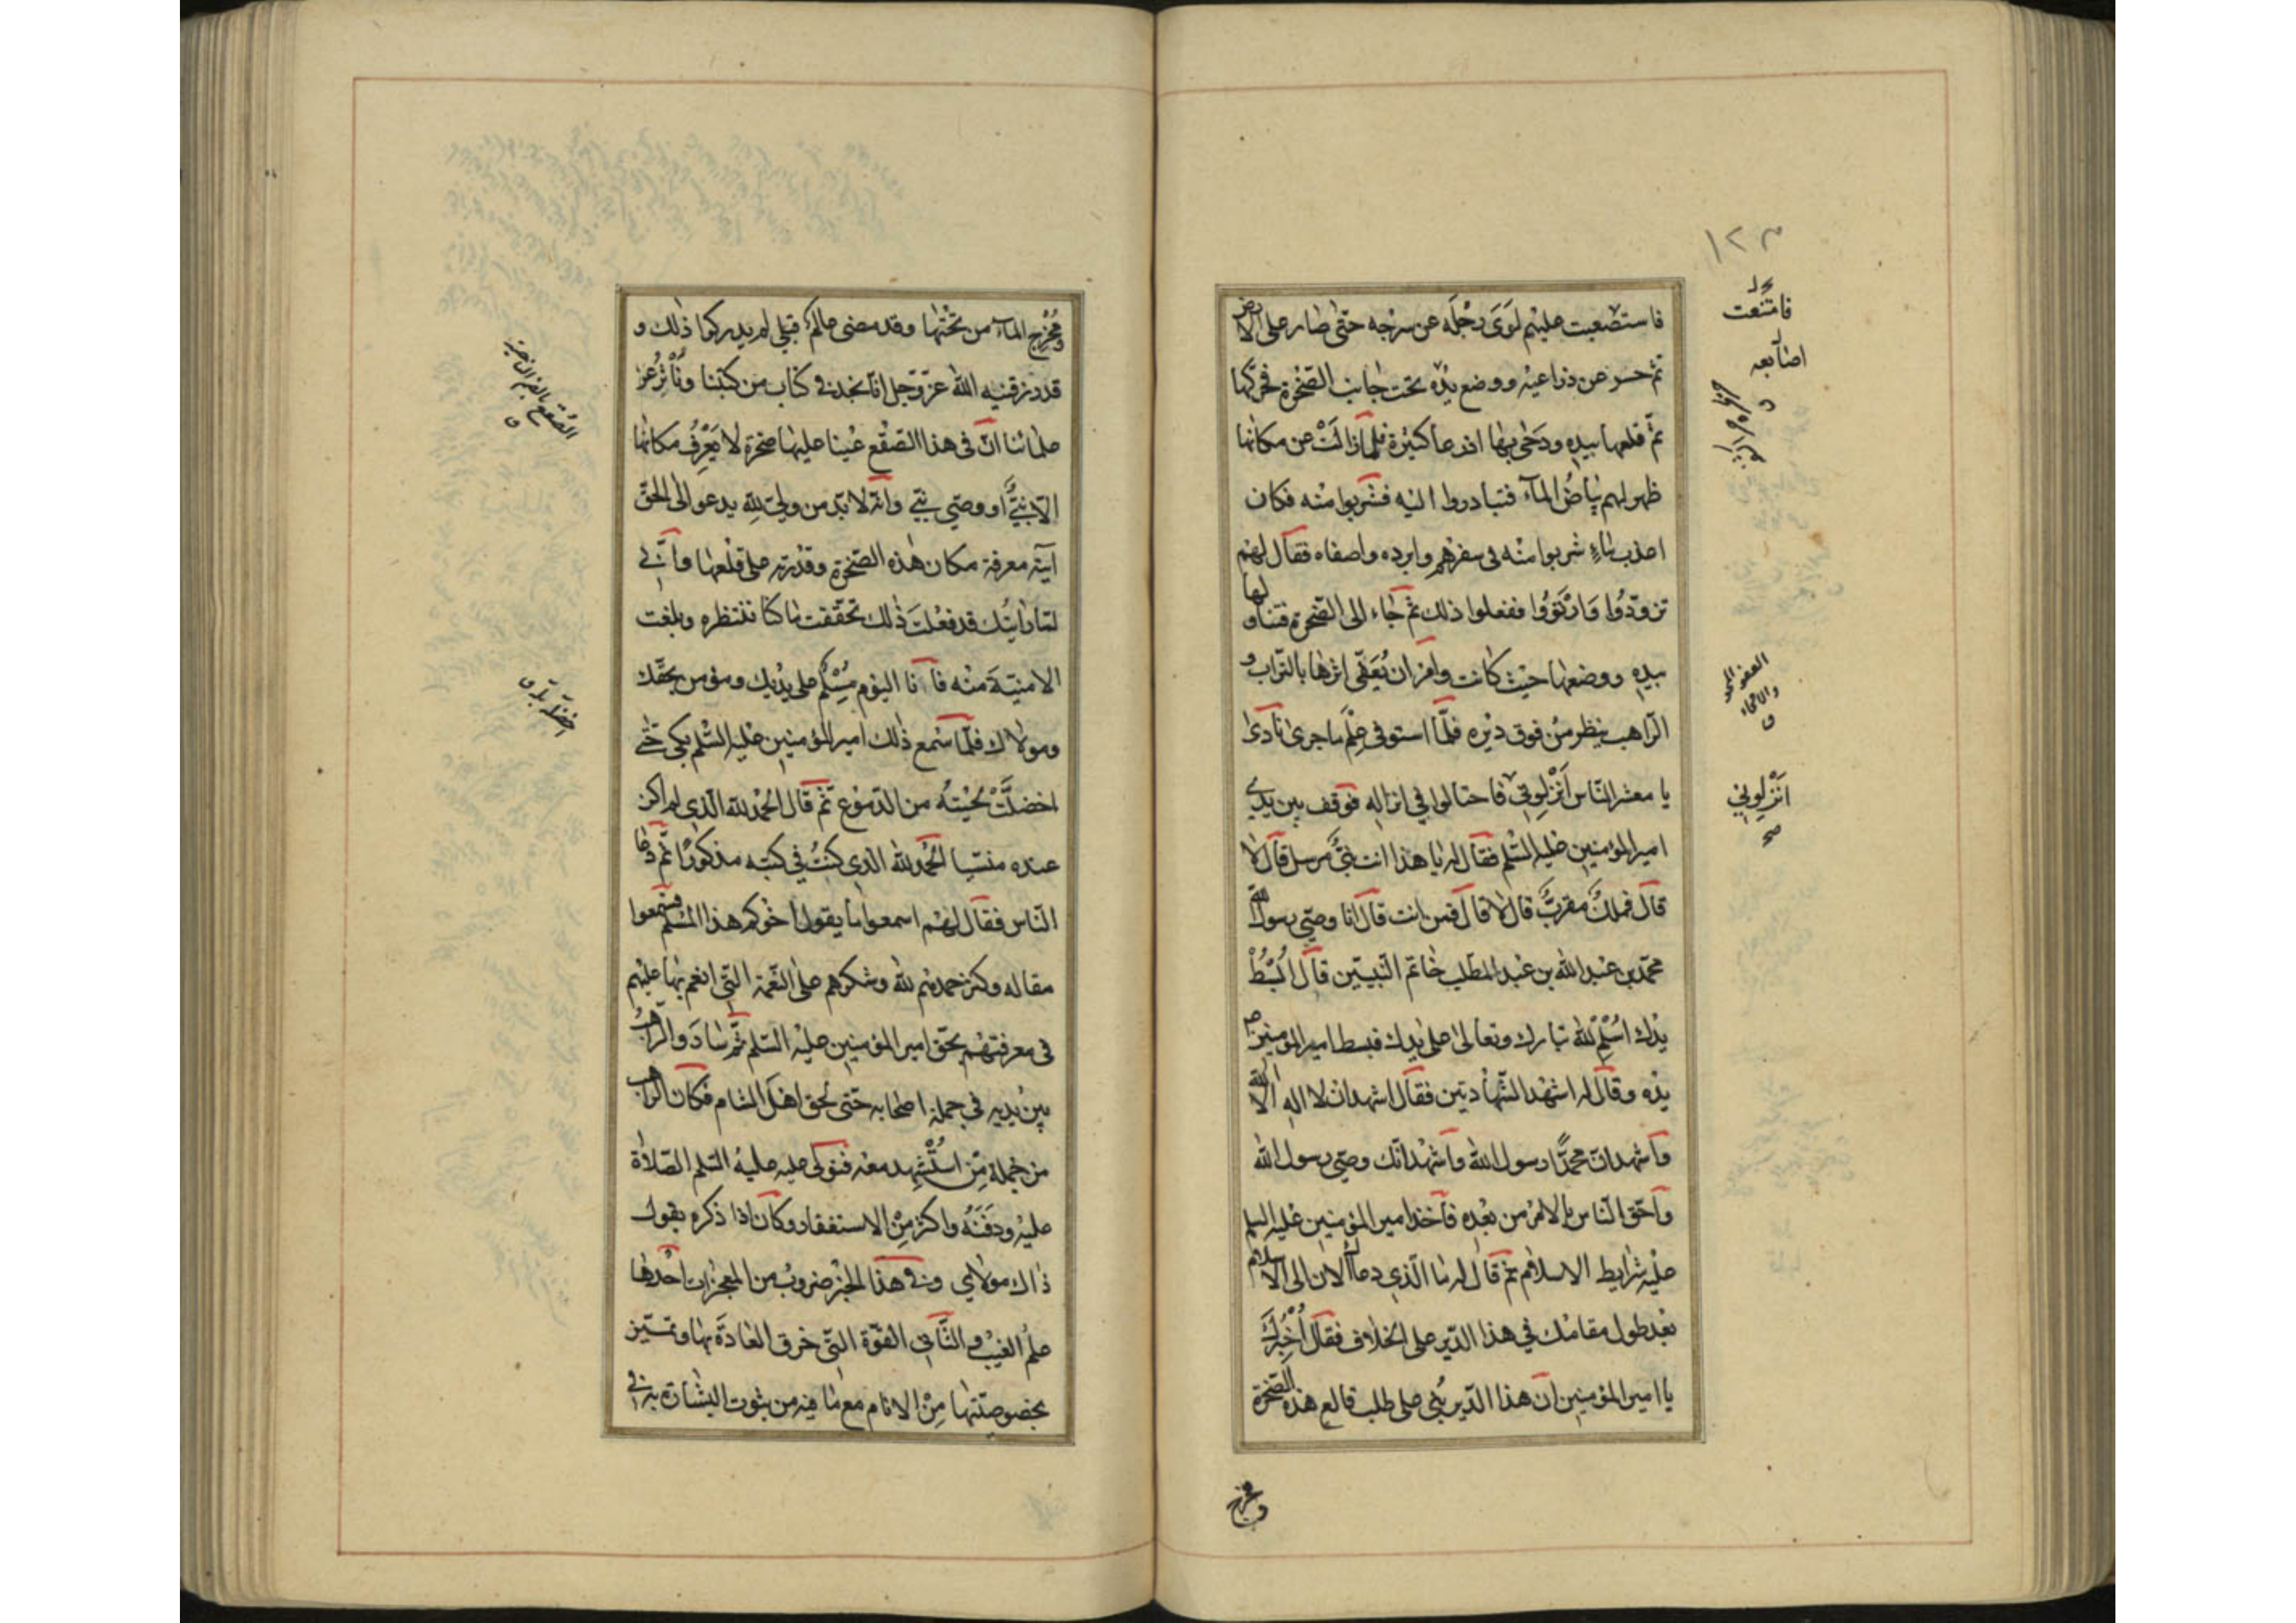 ١٢٣
فاستصعبت عليهم لَوَى رجْلَه عن سرجه حتّى صار على الارض
ثمّ حسر عن ذراعيه ووضع يدَه تحت جانب الصّخرة فحرّكها
ثمّ قلعها بيده ودَحٰى بها اذرعا كثيرة فلمّا زالَتْ عن مكانها
ظهر لهم بياضُ المآء فتبادروا اليه فشربوا منه فكان
اعذب ماءٍ شربوا منه فى سفرهم وابرده واصفاه فقال لهم
تزوّدُوا وَارْتَوُوا ففعلوا ذلك ثمّ جاء الى الصّخرة فتناولها
بيده ووضعها حيث كانت وامر ان يُعَفّى اثرها بالتراب و
الرّاهب ينظر من فوق ديره فلمّا استوفى عِلْمَ ما جرى نادى
يا معشر النّاس اَنْزِلونى فاحتالوا في انزاله فوقف بين يدى
امير المؤمنين عليه السّلم فقال له يا هذا انت نبىٌّ مرسل قال لا
قال فملكٌ مقربٌّ قال لا قال فمن انت قال انا وصىّ رسول اللّه
محمّد بن عبد الله بن عبد المطّلب خاتم النّبيّين قال ابْسُطْ
يدك اُسْلِمْ للّه تبارك وتعالى على يدك فبسط امير المؤمنين ع
يده وقال له اشهد الشّهادتين فقال اشهد ان لا اله الاّ اللّه
واشهد انّ محمّدًا رسول اللّه واشهد انّك وصىّ رسول اللّه
واحقّ النّاس بالامر من بعده فاخذ امير المؤمنين عليه السلم
عليه شرايط الاسلام ثمّ قال له ما الّذي دعاك الان الى الاسلام
بعد طول مقامك في هذا الدّير على الخلاف فقال اُخْبِرُكَ
يا امير المؤمنين انّ هذا الدّير بُنِيَ على طلب قالع هذه الصّخرة
ومخرج
فامتنعت
اصابعه
اَنْزِلوني
صح
ومُخْرِج المآء من تحْتها وقد مضى عالم قبلى لم يدركوا ذلك و
قد رزقنيه اللّه عزّ وجل انّا نجد فى كتاب من كتبنا ونَأْثِرُ عن
علمائنا انّ فى هذا الصّقْع عينا عليها صخرة لا يَعْرِفُ مكانها
الاّ نبىٌّ او وصىّ نبىّ وانّه لا بدّ من ولىّ للّه يدعو الى الحقّ
آيته معرفة مكان هذه الصّخرة وقدرته على قلعها وانّى
لمّا رايتك قد فعلتَ ذلك تحقّقت ما كنّا ننتظره وبلغت
الامنيّة منه فانا اليوم مُسْلِمٌ على يديك ومؤمن بحقّك
ومولاك فلمّا سمع ذلك امير المؤمنين عليه السّلم بكى حتّى
اخضلّتْ لحيته من الدّموع ثمّ قال الحمد للّه الّذي لم اكن
عنده منسيّا الحمد للّه الذي كنتُ في كتبه مذكورًا ثمّ دعا
النّاس فقال لهم اسمعوا ما يقول اخوكم هذا المسلم فسمعوا
مقاله وكثر حمدهم للّه وشكرهم على النّعمة الّتى انعم بها عليهم
فى معرفتهم بحق امير المؤمنين عليه السّلم ثمّ ساروا والرّاهب
بين يديه في جملة اصحابه حتّى لحق اهل الشام فكان الراهب
من جملة مَن اسْتُشْهِد معه فتولّى عليه عليه السّلم الصّلاة
عليه ودَفَنَهُ واكثر مِنْ الاستغفار وكان اذا ذكره يقول
ذاك مولاي وفى هذا الخبر ضروب من المعجزات احدها
علمُ الغيب والثّانى القوّة الّتى خرق العادة بها وتميّز
بخصوصيّتها مِنْ الانام مع ما فيه من ثبوت البشارة به فى
الصُّقع بالضم الناحية
اخضلّ بلّ ق